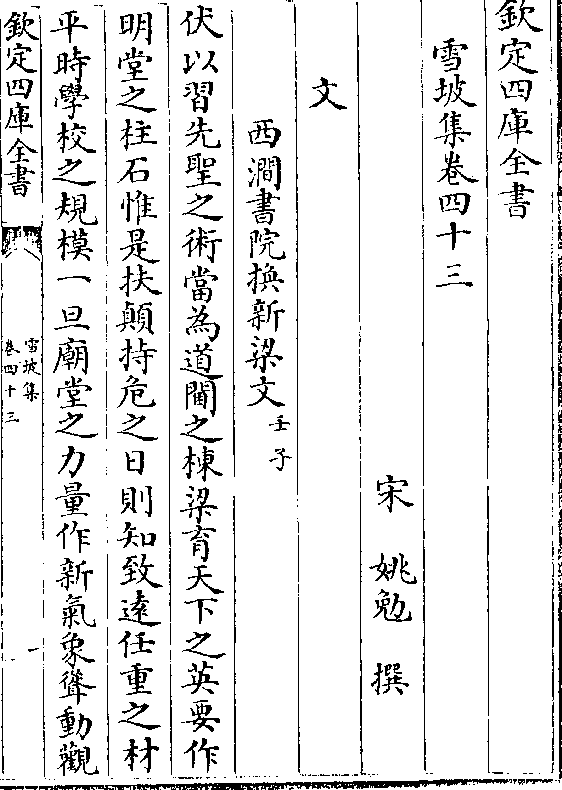 欽定四庫全書
雪坡集卷四十三
宋 姚勉 撰
文
西澗書院換新梁文壬子
伏以習先聖之術當為道閫之棟梁育天下之英要作
明堂之柱石惟是扶顛持危之日則知致遠任重之材
平時學校之規模一旦廟堂之力量作新氣象聳動觀
欽定四庫全書
雪坡集
卷四十三
一